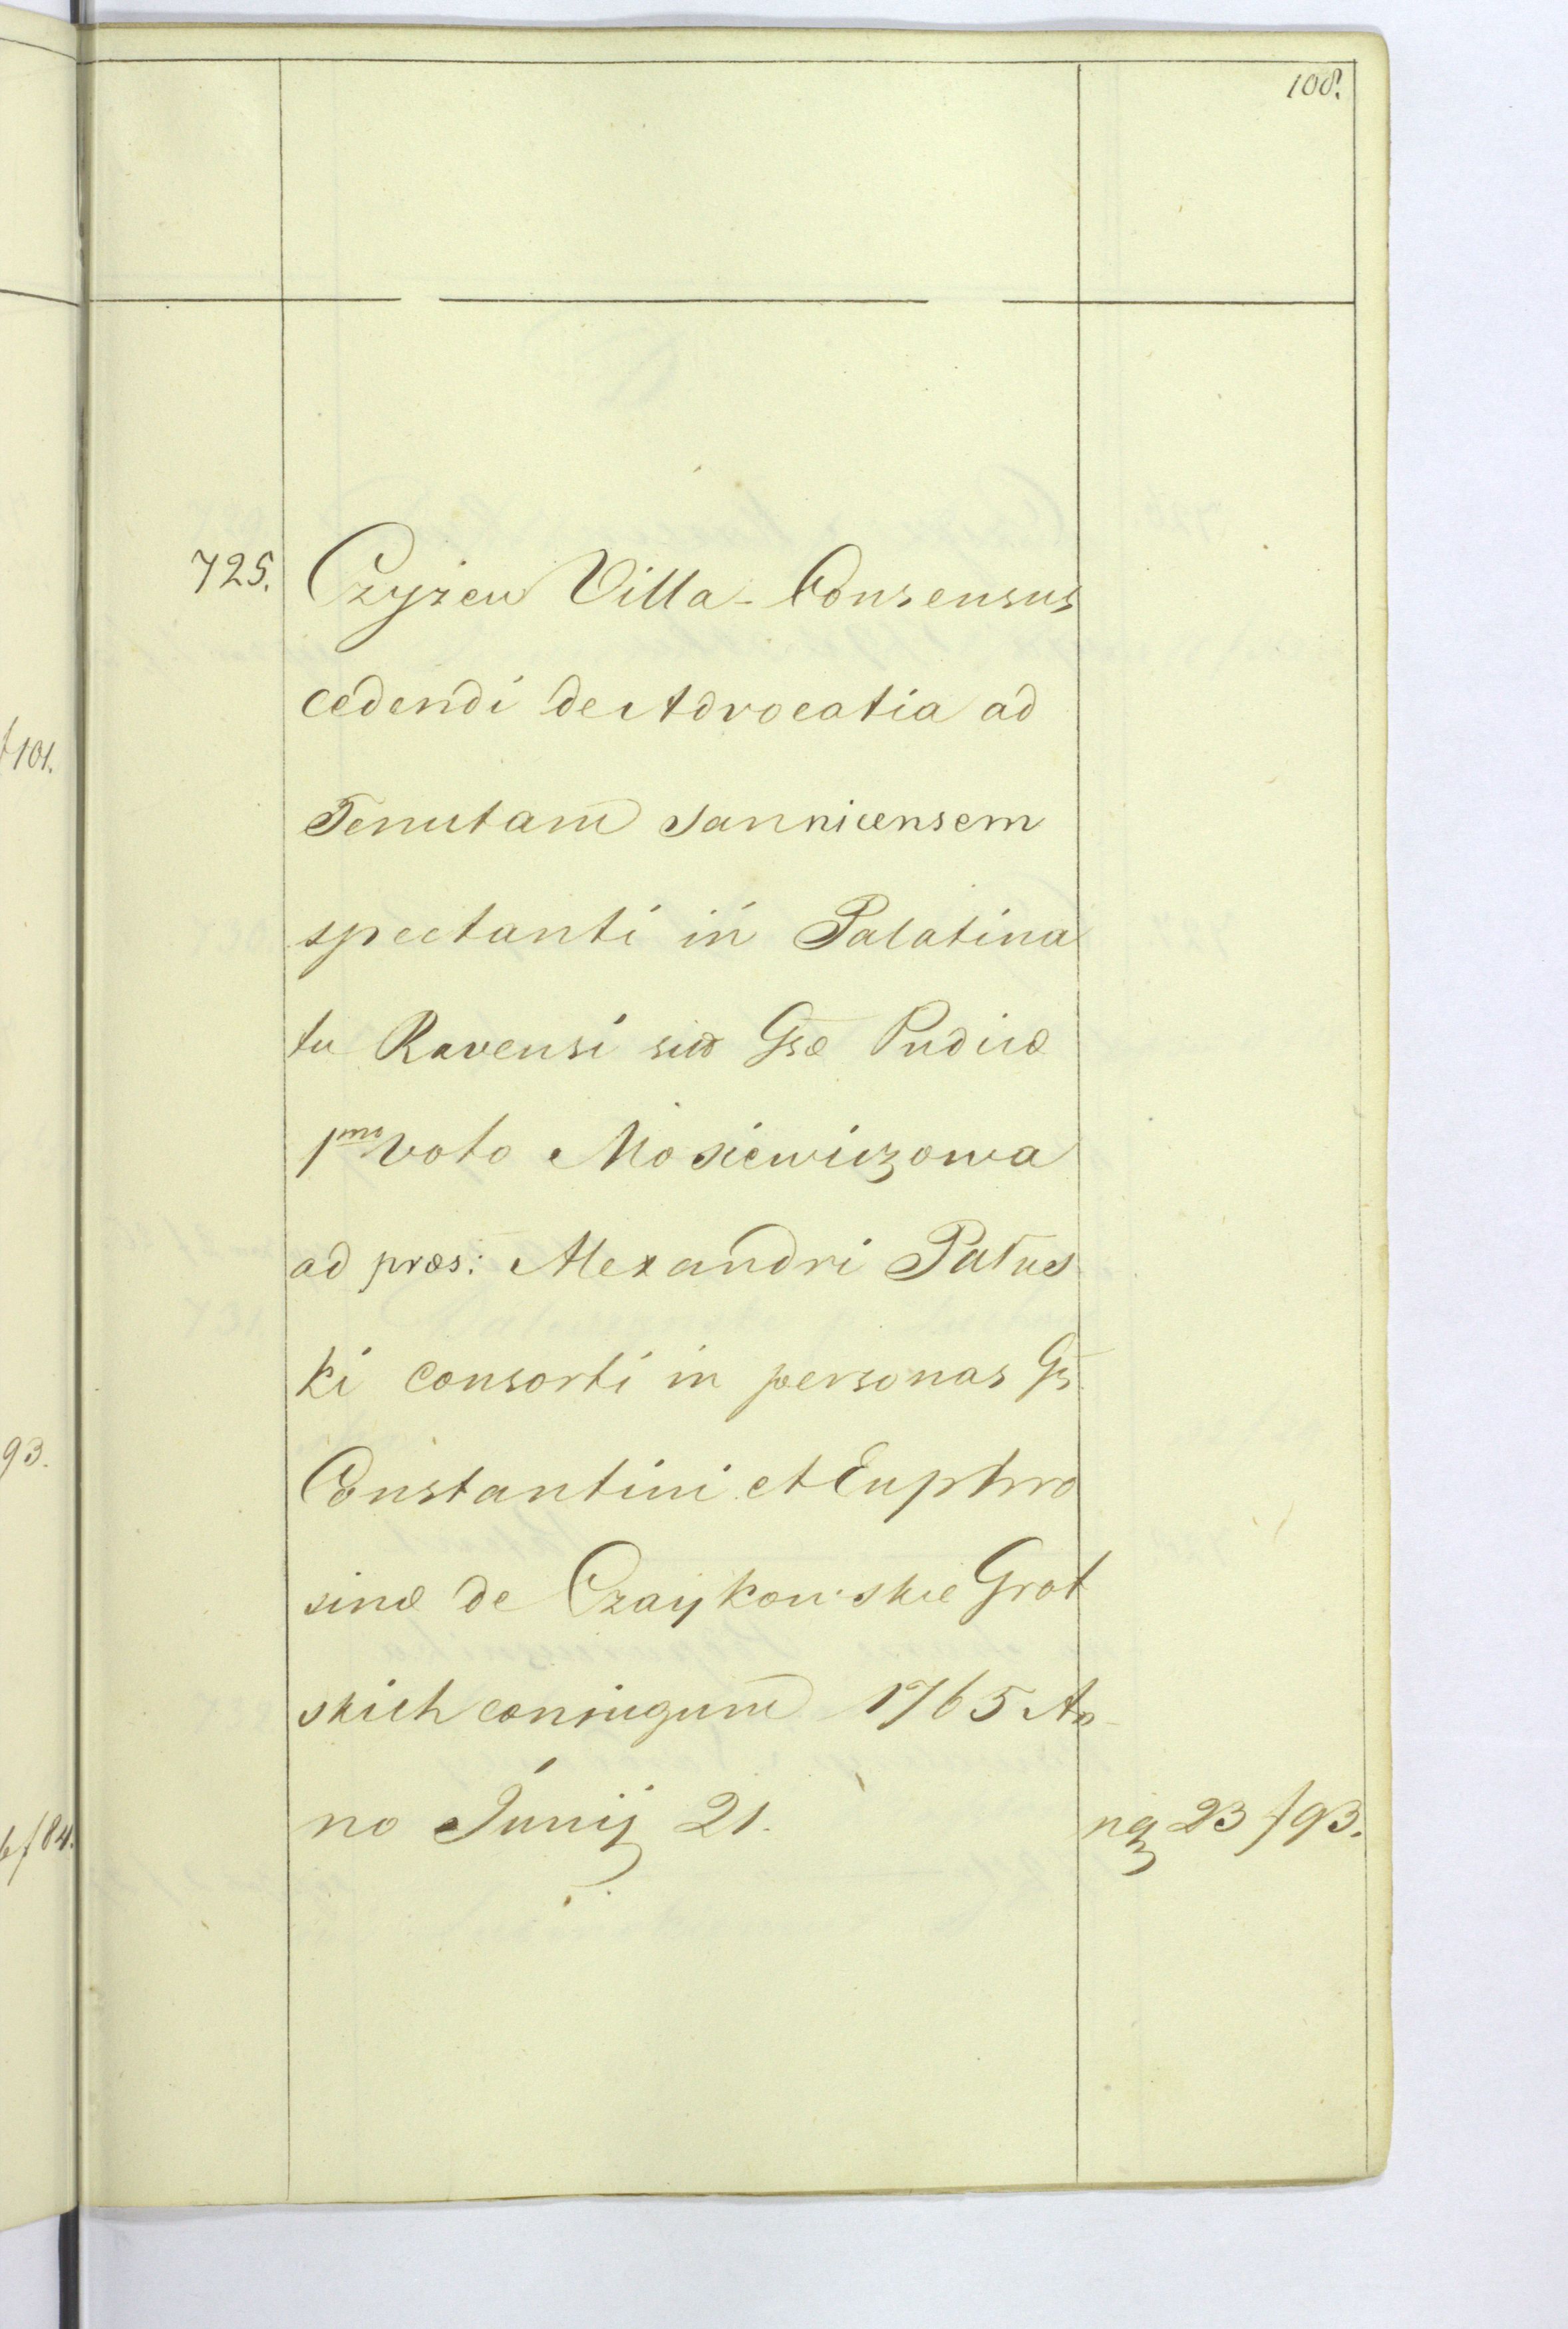 108.
725. Czyżew Villa - Consensus
cedendi de Advocatia ad
Tenutam Sannicensem
spectanti in Palatina
tu Ravensi sitæ Gsæ Pudicæ
1mo voto Mosiewiczowa
ad præs: Alexandri Patus
ki consorti in personas Gs
Constantini et Euphro
sinæ de Czaykowskie Grot
skich coniugum 1765 An-
no Junij 21. nq 23 f 93.
f 101.
93.
f 84.